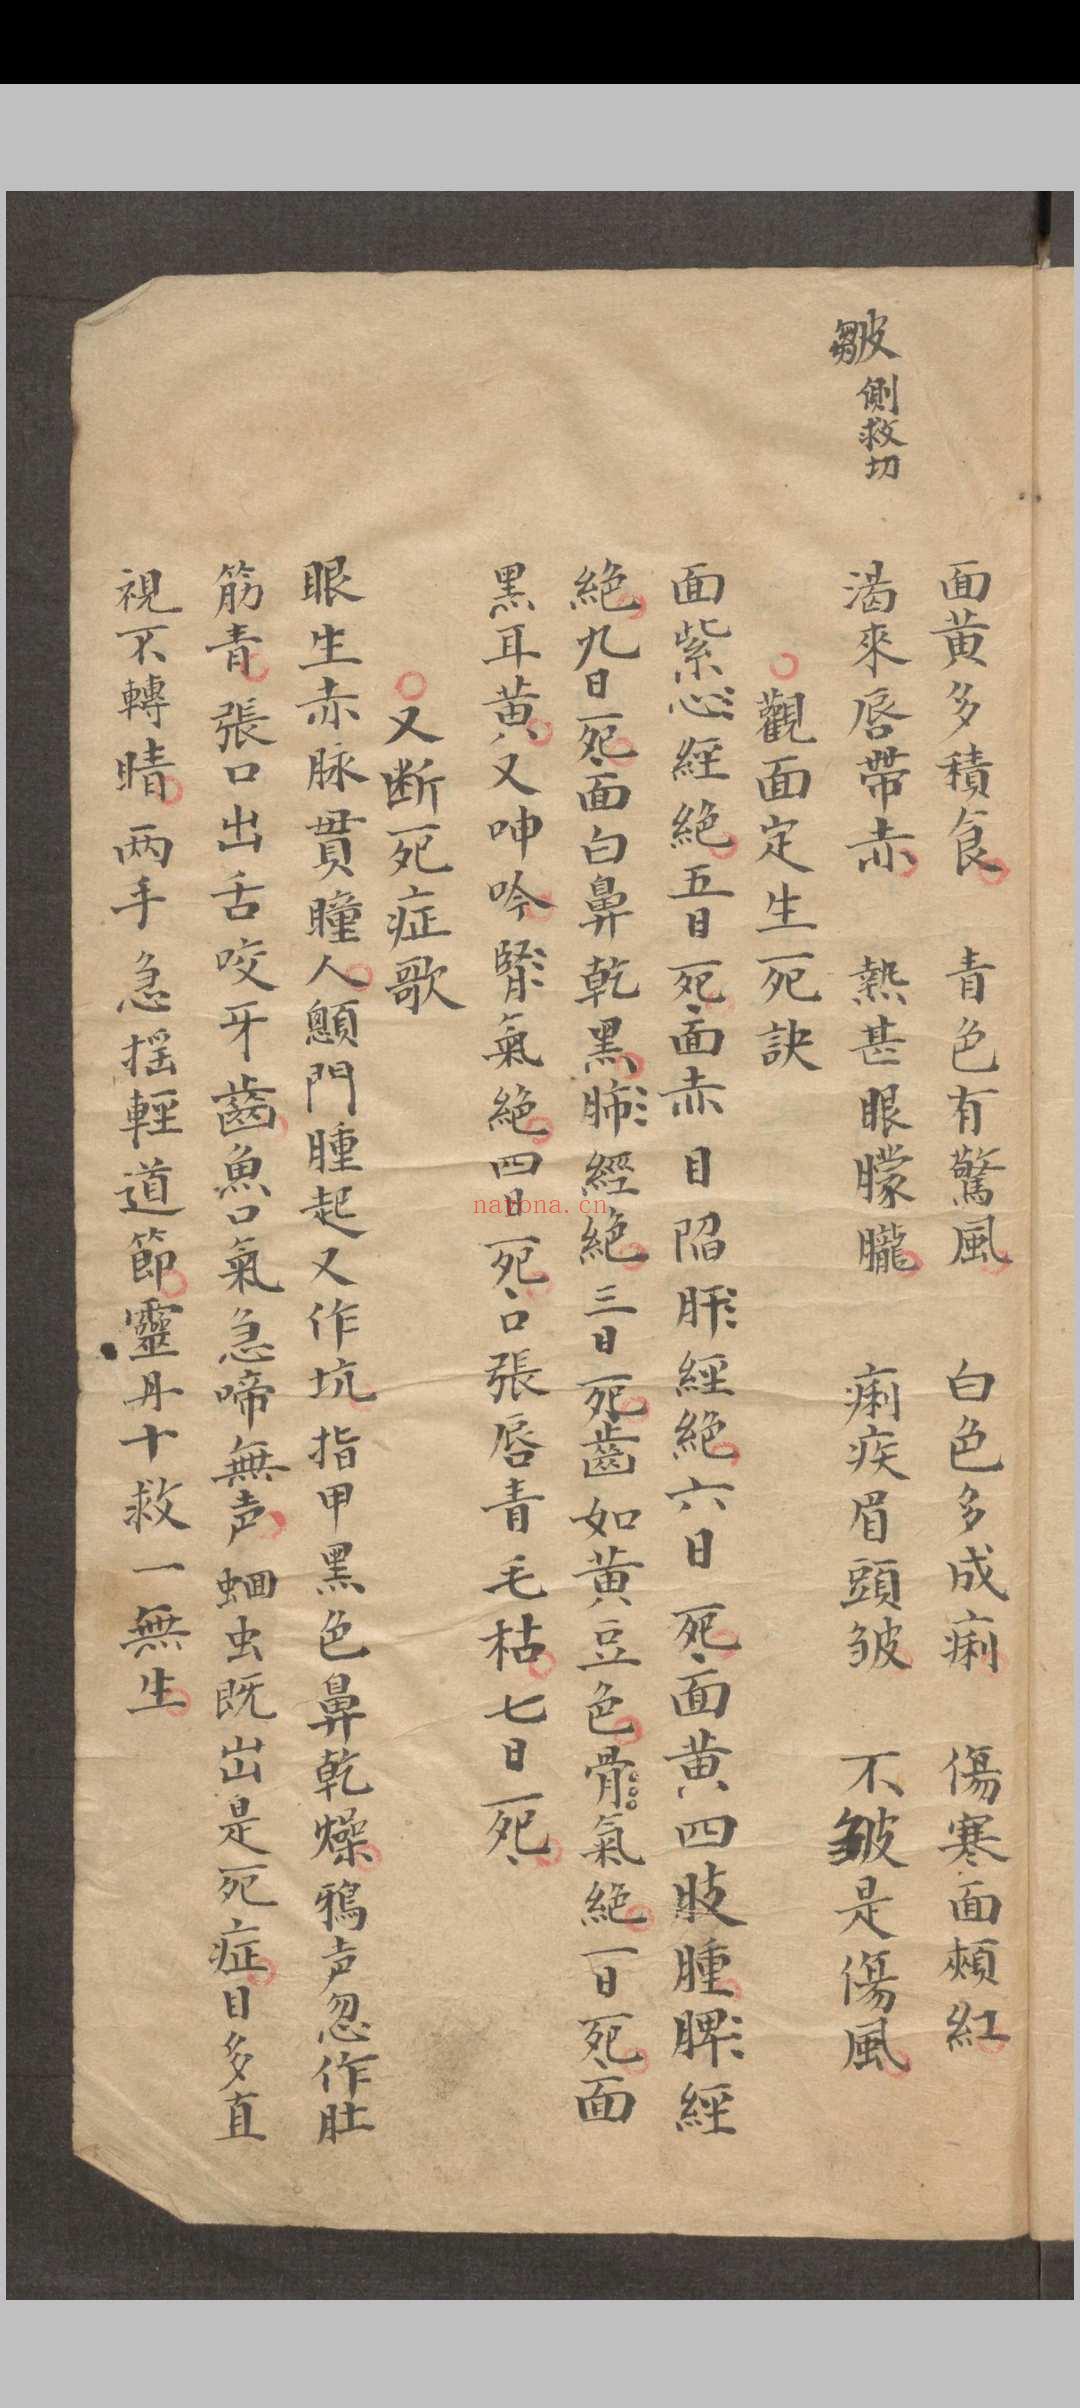 皺側救切
面黄多積食　青色有驚風　白色多成痢　傷寒面頰紅
渴來唇帶赤　熱甚眼朦朧　痢疾眉頭皺　不皺是傷風
觀面定生死訣
面紫心經絶五日死面赤目陷肝經絶六日死面黄四肢腫脾經
絶九日死面白鼻乾黑肺經絶三日死齒如黄豆色骨氣絶一日死面
黑耳黄又呻吟腎氣絶四日死口張唇青毛枯七日死
又断死症歌
眼生赤脉貫瞳人顖門腫起又作坑指甲黑色鼻乾燥鴉声忽作肚
筋青張口出舌咬牙齒魚口氣急啼無声蛔虫既出是死症目多直
視不轉睛两手急揺輕道節靈丹十救一無生
nayona.cn